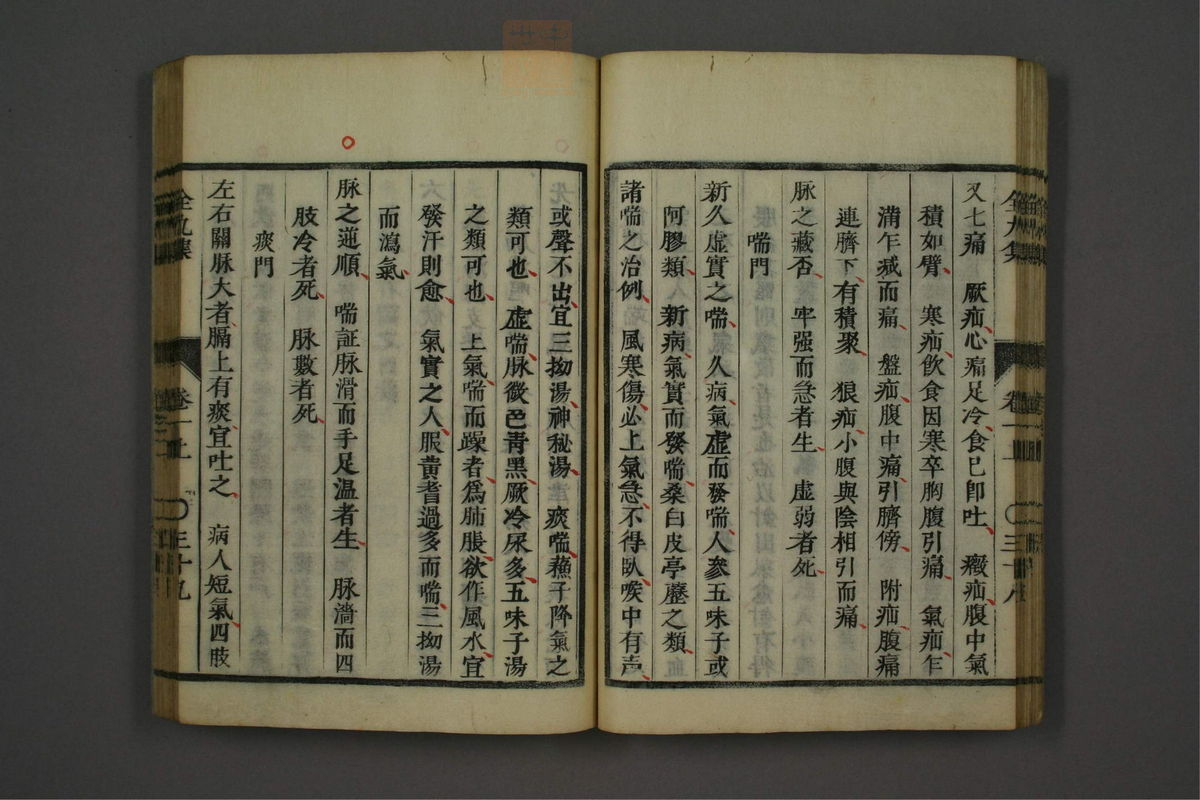 又七痛　厥疝心痛足冷食已卽吐　瘕疝腹中氣
積如臂　寒疝飲食因寒卒胸腹引痛　氣疝乍
滿乍减而痛　盤疝腹中痛引臍傍　附疝腹痛
連臍下有積聚　狼疝小腹與陰相引而痛
脉之藏否　牢强而急者生　虛弱者死
喘門
新久虛實之喘　久病氣虛而發喘人參五味子或
阿膠類　新病氣實而發喘桑白皮亭藶之類
諸喘之治例　風寒傷必上氣急不得臥喉中有声
或聲不出宜三拗湯神秘湯　痰喘蘓子降氣之
類可也　虛喘脉微色靑黑厥冷尿多五味子湯
之類可也　上氣喘而躁者爲肺脹欲作風水宜
發汗則愈　氣實之人服黄耆過多而喘三拗湯
而瀉氣
脉之逆順　喘証脉滑而手足温者生　脉濇而四
肢冷者死　脉數者死
痰門
左右關脉大者膈上有痰宜吐之　病人短氣四肢
全九集　卷一上　三十九
全九集　卷一上　三十八